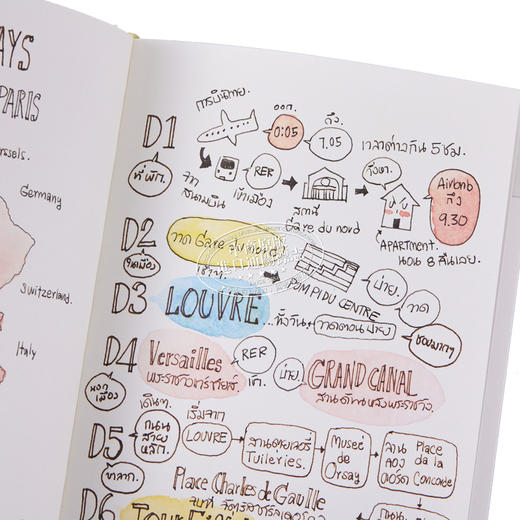 AYS
PARIS
russels.
Germany
Switzerland.
Italy
D1
การบินไทย.
ออก.
0:05
ถึง
7.05
เวลาต่างกัน 5 ชม.
ที่พัก.
จาก
สนามบิน
RER
เข้าเมือง
สถานี
Gare du nord
ถึงหา.
Airbnb
ถึง
9.30
APARTMENT.
นอน 8 คืนเลย.
D2
ในเมือง
วาด Gare du nord
เช้าๆ
POMPIDU CENTRE
บ่าย.
วาด
ชอบมากๆ
D3
LOUVRE
... ทั้งวัน
วาดตอนบ่าย
D4
นอก
เมือง
Versailles
พระราชวังแวร์ซายส์
RER
เช้า.
บ่าย
GRAND CANAL
สวนด้านหลังพระราชวัง.
D5
ลากวาด.
เดินๆ.
ถนน
สาย
หลัก.
เริ่มจาก
LOUVRE
สวนตุยเลอรี
Tuileries.
Musee
de
Orsay
ลาน Place
ของ de la
Concorde
D6
Place Charles de Gaulle